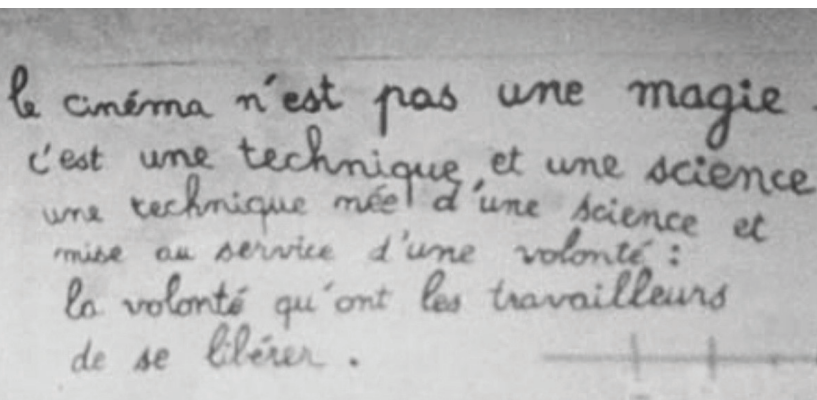 le cinéma n'est pas une magie.
c'est une technique et une science
une technique née d'une science et
mise au service d'une volonté :
la volonté qu'ont les travailleurs
de se libérer.